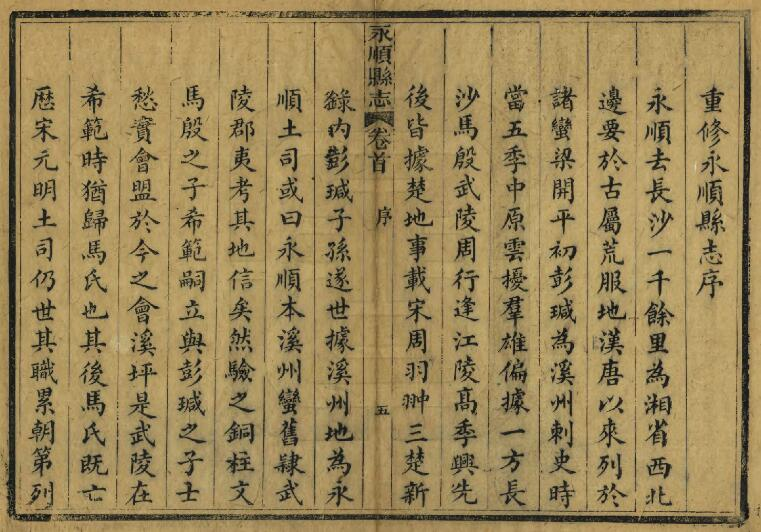 重修永順縣志序
永順去長沙一千餘里為湘省西北
邊要於古屬荒服地漢唐以來列於
諸蠻梁開平初彭瑊為溪州刺史時
當五季中原雲擾羣雄偏據一方長
沙馬殷武陵周行逢江陵高季興先
後皆據楚地事載宋周羽翀三楚新
永順縣志 卷首 序 五
錄內彭瑊子孫遂世據溪州地為永
順土司或曰永順本溪州蠻舊隸武
陵郡夷考其地信矣然驗之銅柱文
馬殷之子希範嗣立與彭瑊之子士
愁實會盟於今之會溪坪是武陵在
希範時猶歸馬氏也其後馬氏既亡
歷宋元明土司仍世其職累朝第列